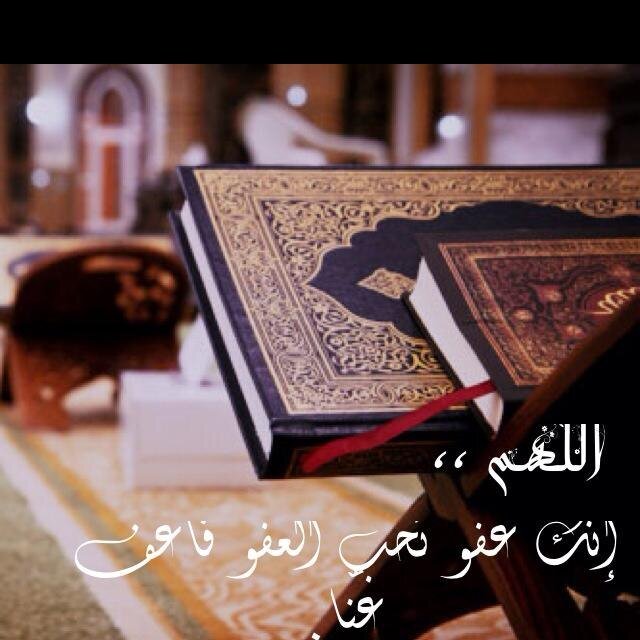 اللهم ،،
إنك عفو تحب العفو فاعف
عنّا